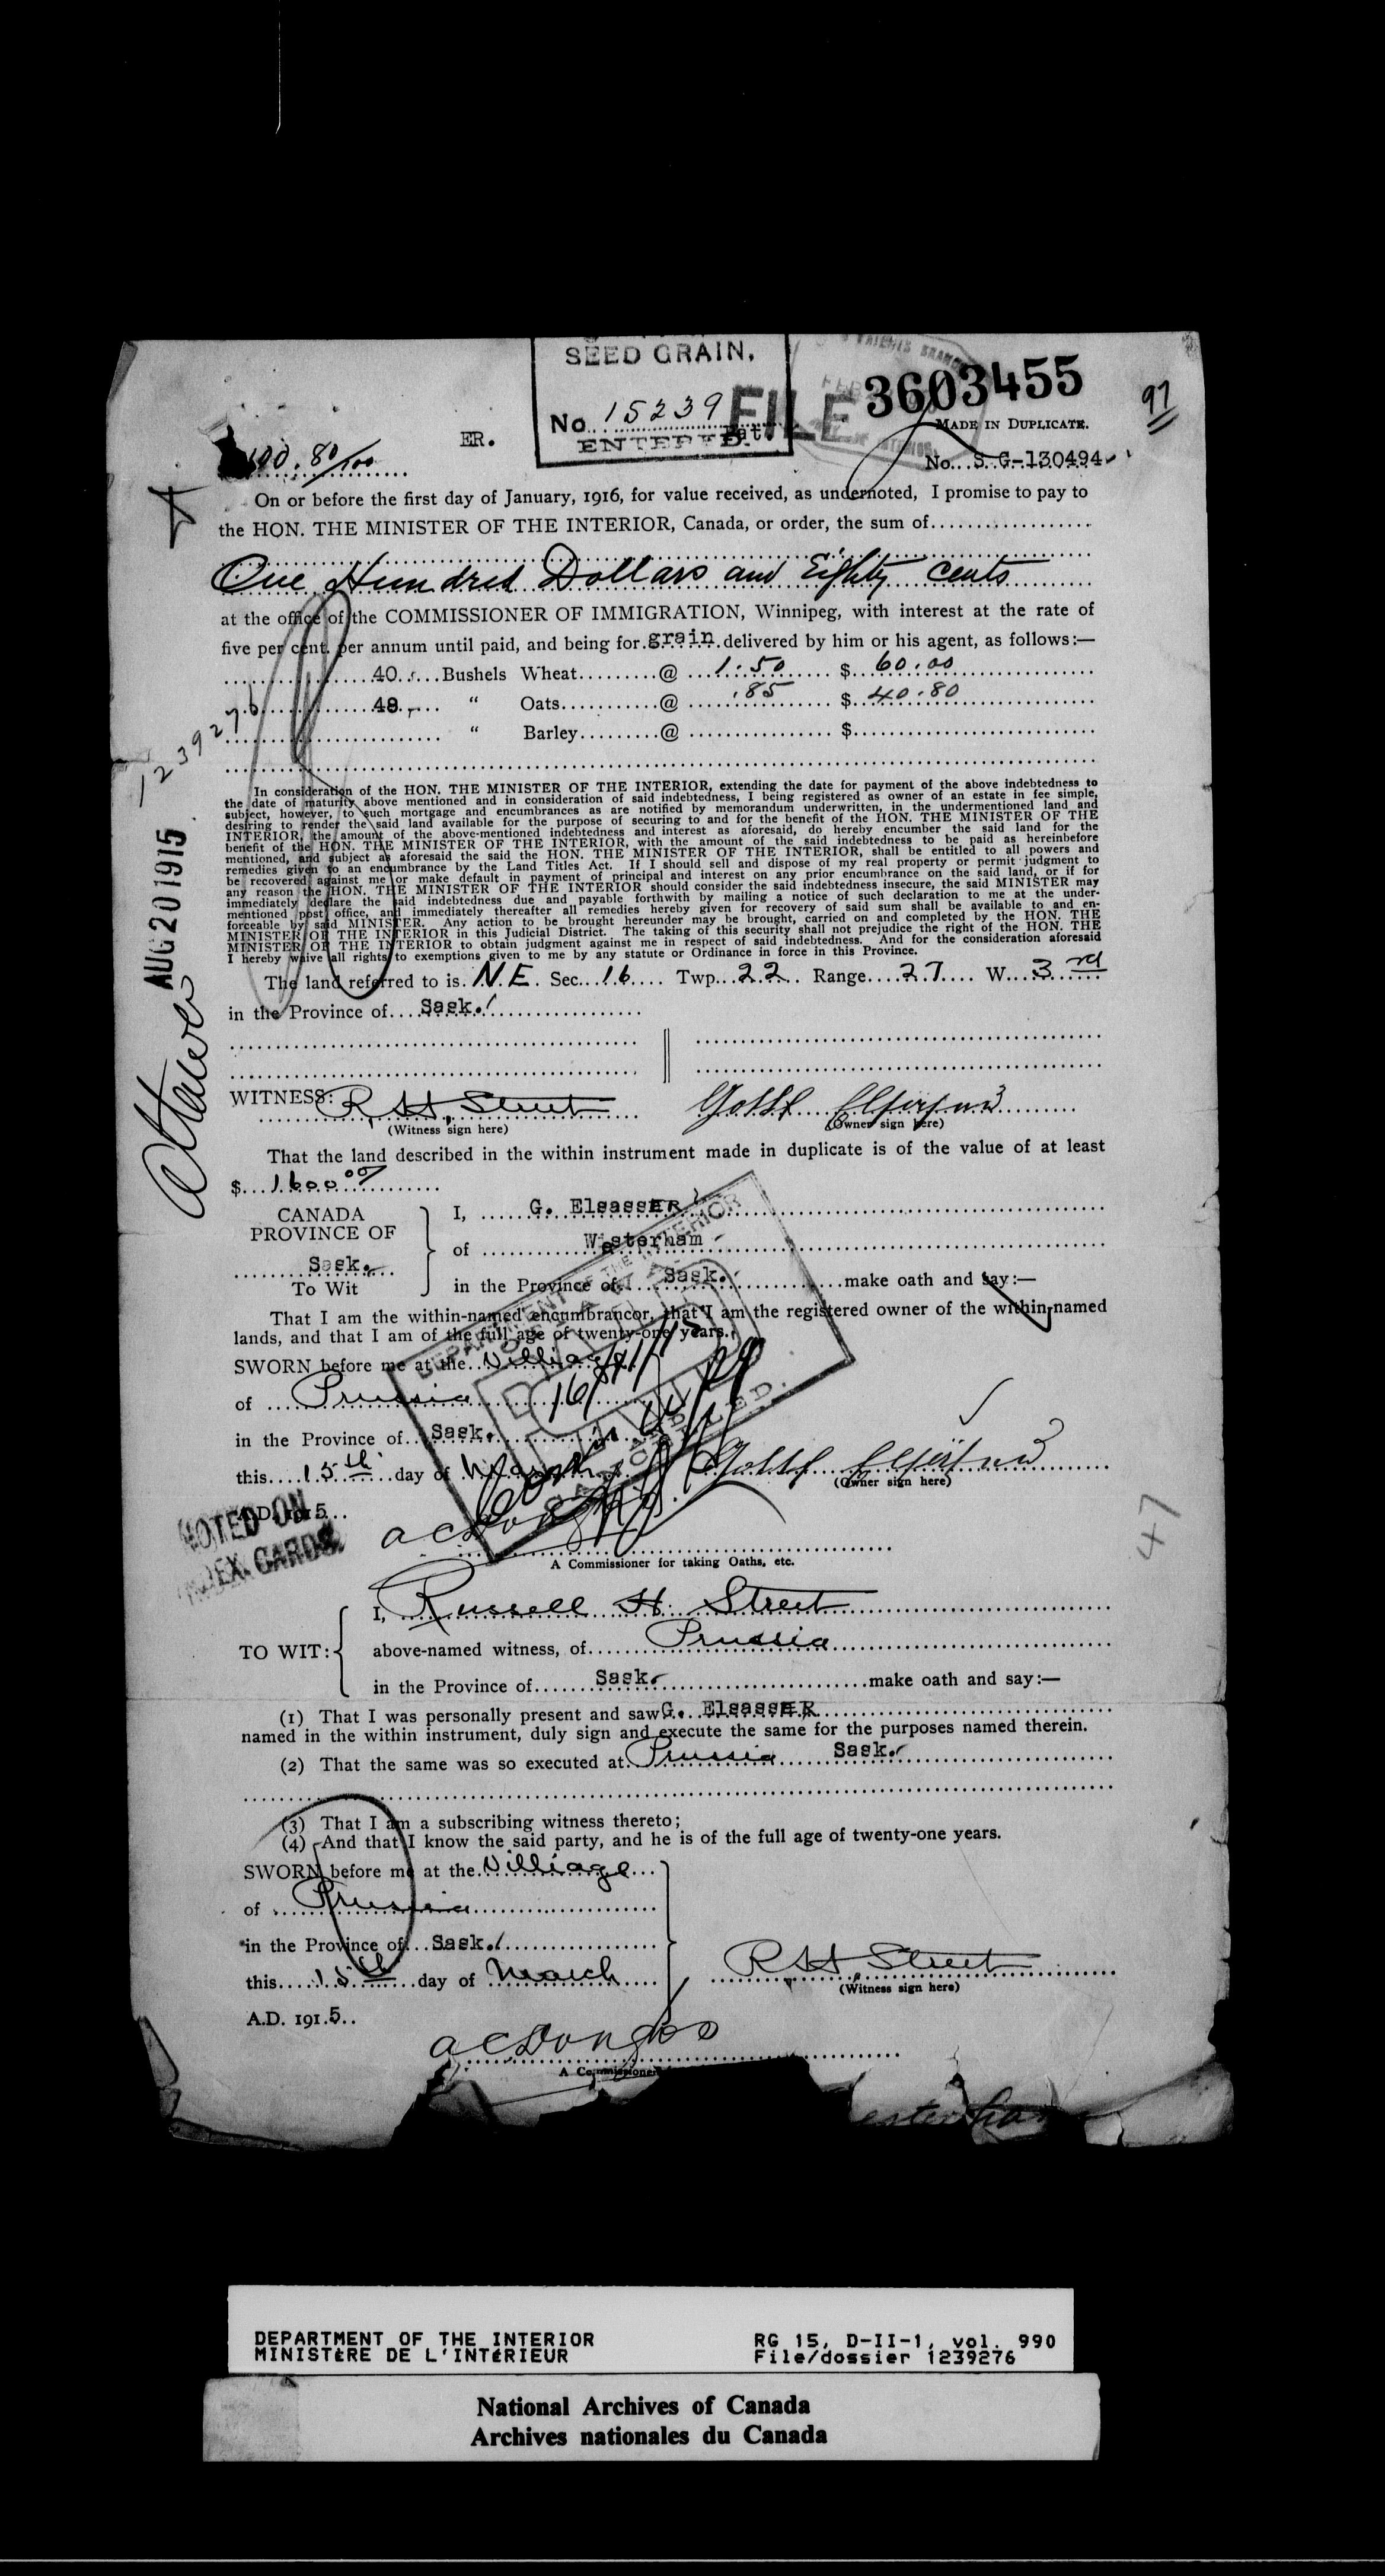 SEED GRAIN.
No. 15239
ENTERED.
FILE
3603455
97
ER.
Pat.
MADE IN DUPLICATE.
100.80/100
No. S.G-130494
On or before the first day of January, 1916, for value received, as undernoted, I promise to pay to
the HON. THE MINISTER OF THE INTERIOR, Canada, or order, the sum of
One Hundred Dollars and Eighty cents
at the office of the COMMISSIONER OF IMMIGRATION, Winnipeg, with interest at the rate of
five per cent. per annum until paid, and being for grain delivered by him or his agent, as follows:—
40 Bushels Wheat @ 1.50 $ 60.00
48 " Oats @ .85 $ 40.80
" Barley @ $
1239276
In consideration of the HON. THE MINISTER OF THE INTERIOR, extending the date for payment of the above indebtedness to
the date of maturity above mentioned and in consideration of said indebtedness, I being registered as owner of an estate in fee simple,
subject, however, to such mortgage and encumbrances as are notified by memorandum underwritten, in the undermentioned land and
desiring to render the said land available for the purpose of securing to and for the benefit of the HON. THE MINISTER OF THE
INTERIOR, the amount of the above-mentioned indebtedness and interest as aforesaid, do hereby encumber the said land for the
benefit of the HON. THE MINISTER OF THE INTERIOR, with the amount of the said indebtedness to be paid as hereinbefore
mentioned, and subject as aforesaid the said the HON. THE MINISTER OF THE INTERIOR, shall be entitled to all powers and
remedies given to an encumbrance by the Land Titles Act. If I should sell and dispose of my real property or permit judgment to
be recovered against me or make default in payment of principal and interest on any prior encumbrance on the said land, or if for
any reason the HON. THE MINISTER OF THE INTERIOR should consider the said indebtedness insecure, the said MINISTER may
immediately declare the said indebtedness due and payable forthwith by mailing a notice of such declaration to me at the under-
mentioned post office, and immediately thereafter all remedies hereby given for recovery of said sum shall be available to and en-
forceable by said MINISTER. Any action to be brought hereunder may be brought, carried on and completed by the HON. THE
MINISTER OF THE INTERIOR in this Judicial District. The taking of this security shall not prejudice the right of the HON. THE
MINISTER OF THE INTERIOR to obtain judgment against me in respect of said indebtedness. And for the consideration aforesaid
I hereby waive all rights to exemptions given to me by any statute or Ordinance in force in this Province.
AUG 20 1915
Ottawa
The land referred to is N.E. Sec. 16 Twp. 22 Range 27 W. 3rd
in the Province of Sask.
WITNESS: R H Street
(Witness sign here)
(Owner sign here)
That the land described in the within instrument made in duplicate is of the value of at least
$ 1600 00
CANADA
PROVINCE OF
Sask.
To Wit
I, G. ElsassER
of Westerham
in the Province of Sask. make oath and say:—
That I am the within-named encumbrancor, that I am the registered owner of the within named
lands, and that I am of the full age of twenty-one years.
SWORN before me at the Villiage
of Prussia
in the Province of Sask.
this 15th day of March
A.D. 1915
(Owner sign here)
DEPARTMENT OF THE INTERIOR
NOTED ON
INDEX CARDS
A Commissioner for taking Oaths, etc.
47
TO WIT:
I, Russell H. Street
above-named witness, of Prussia
in the Province of Sask. make oath and say:—
(1) That I was personally present and saw G. ElsassER
named in the within instrument, duly sign and execute the same for the purposes named therein.
(2) That the same was so executed at Prussia Sask.
(3) That I am a subscribing witness thereto;
(4) And that I know the said party, and he is of the full age of twenty-one years.
SWORN before me at the Villiage
of Prussia
in the Province of Sask.
this 15th day of March
A.D. 1915
R H Street
(Witness sign here)
A Commissioner
DEPARTMENT OF THE INTERIOR
MINISTÈRE DE L'INTÉRIEUR
RG 15, D-II-1, vol. 990
File/dossier 1239276
National Archives of Canada
Archives nationales du Canada